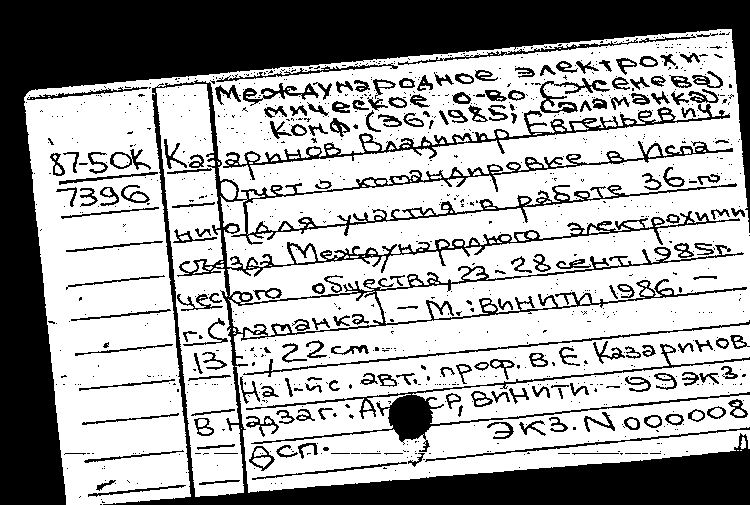 Международное электрохи-
мическое о-во (Женева).
Конф. (36; 1985; Саламанка).
87-50К Казаринов, Владимир Евгеньевич.
7396 Отчет о командировке в Испа-
нию [для участия в работе 36-го
съезда Международного электрохими
ческого общества, 23-28 сент. 1985г.
г. Саламанка]. - М.: ВИНИТИ, 1986. -
13 с.; 22 см.
На 1-й с. авт.: проф. В.Е. Казаринов
В надзаг.: СР, ВИНИТИ. - 99 экз.
ЭКЗ. N 000008
Дсп.